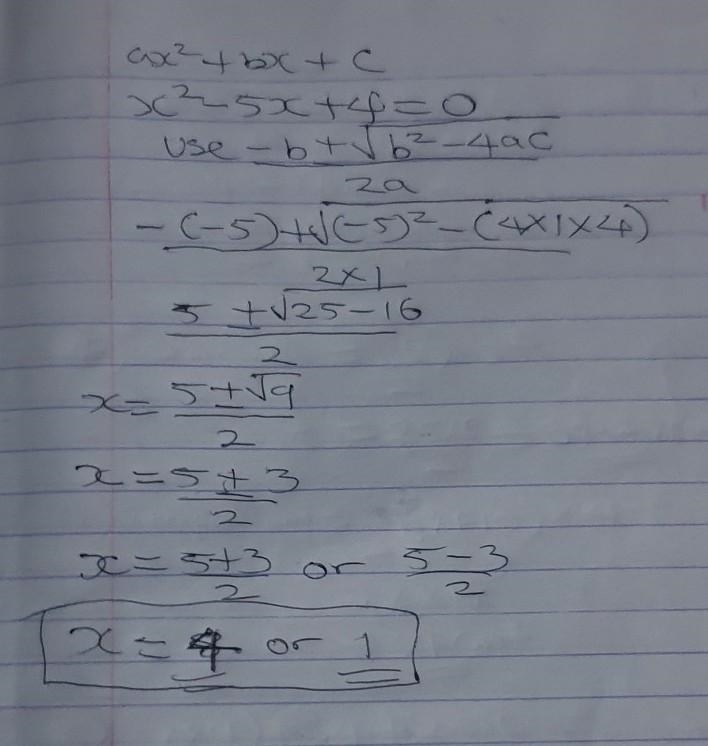 ax² + bx + c
x² - 5x + 4 = 0
use -b + √b² - 4ac
2a
-(-5) + √(-5)² - (4×1×4)
2×1
5 ± √25-16
2
x = 5 ± √9
2
x = 5 ± 3
2
x = 5+3 or 5-3
2 2
x = 4 or 1